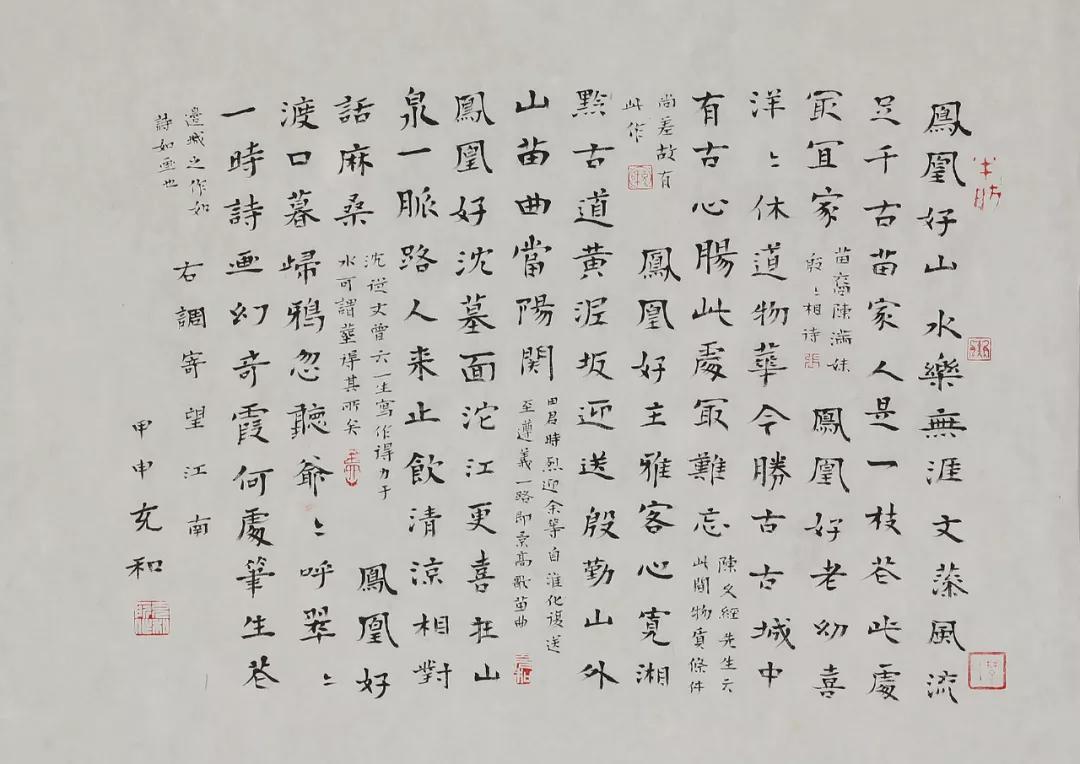 鳳凰好山水樂無涯文藻風流
足千古苗家人是一枝芲此處
冣宜家
苗裔陳滿妹
殷〻相待
鳳凰好老幼喜
洋〻休道物華今勝古古城中
有古心腸此處冣難忘
陳文經先生云
此間物質條件
尚差故有
此作
鳳凰好主雅客心寬湘
黔古道黃泥坂迎送殷勤山外
山苗曲當陽関
田君時烈迎余等自淮化復送
至遵義一路即景高歌苗曲
鳳凰好沈墓面沱江更喜壯山
泉一脈路人来止飲清涼相對
話麻桑
沈從文曾云一生寫作得力于
水可謂葬得其所矣
鳳凰好
渡口暮歸鴉忽聽爺〻呼翠〻
一時詩画幻奇霞何處筆生芲
邊城之作如
詩如画也
右調寄望江南
甲申充和